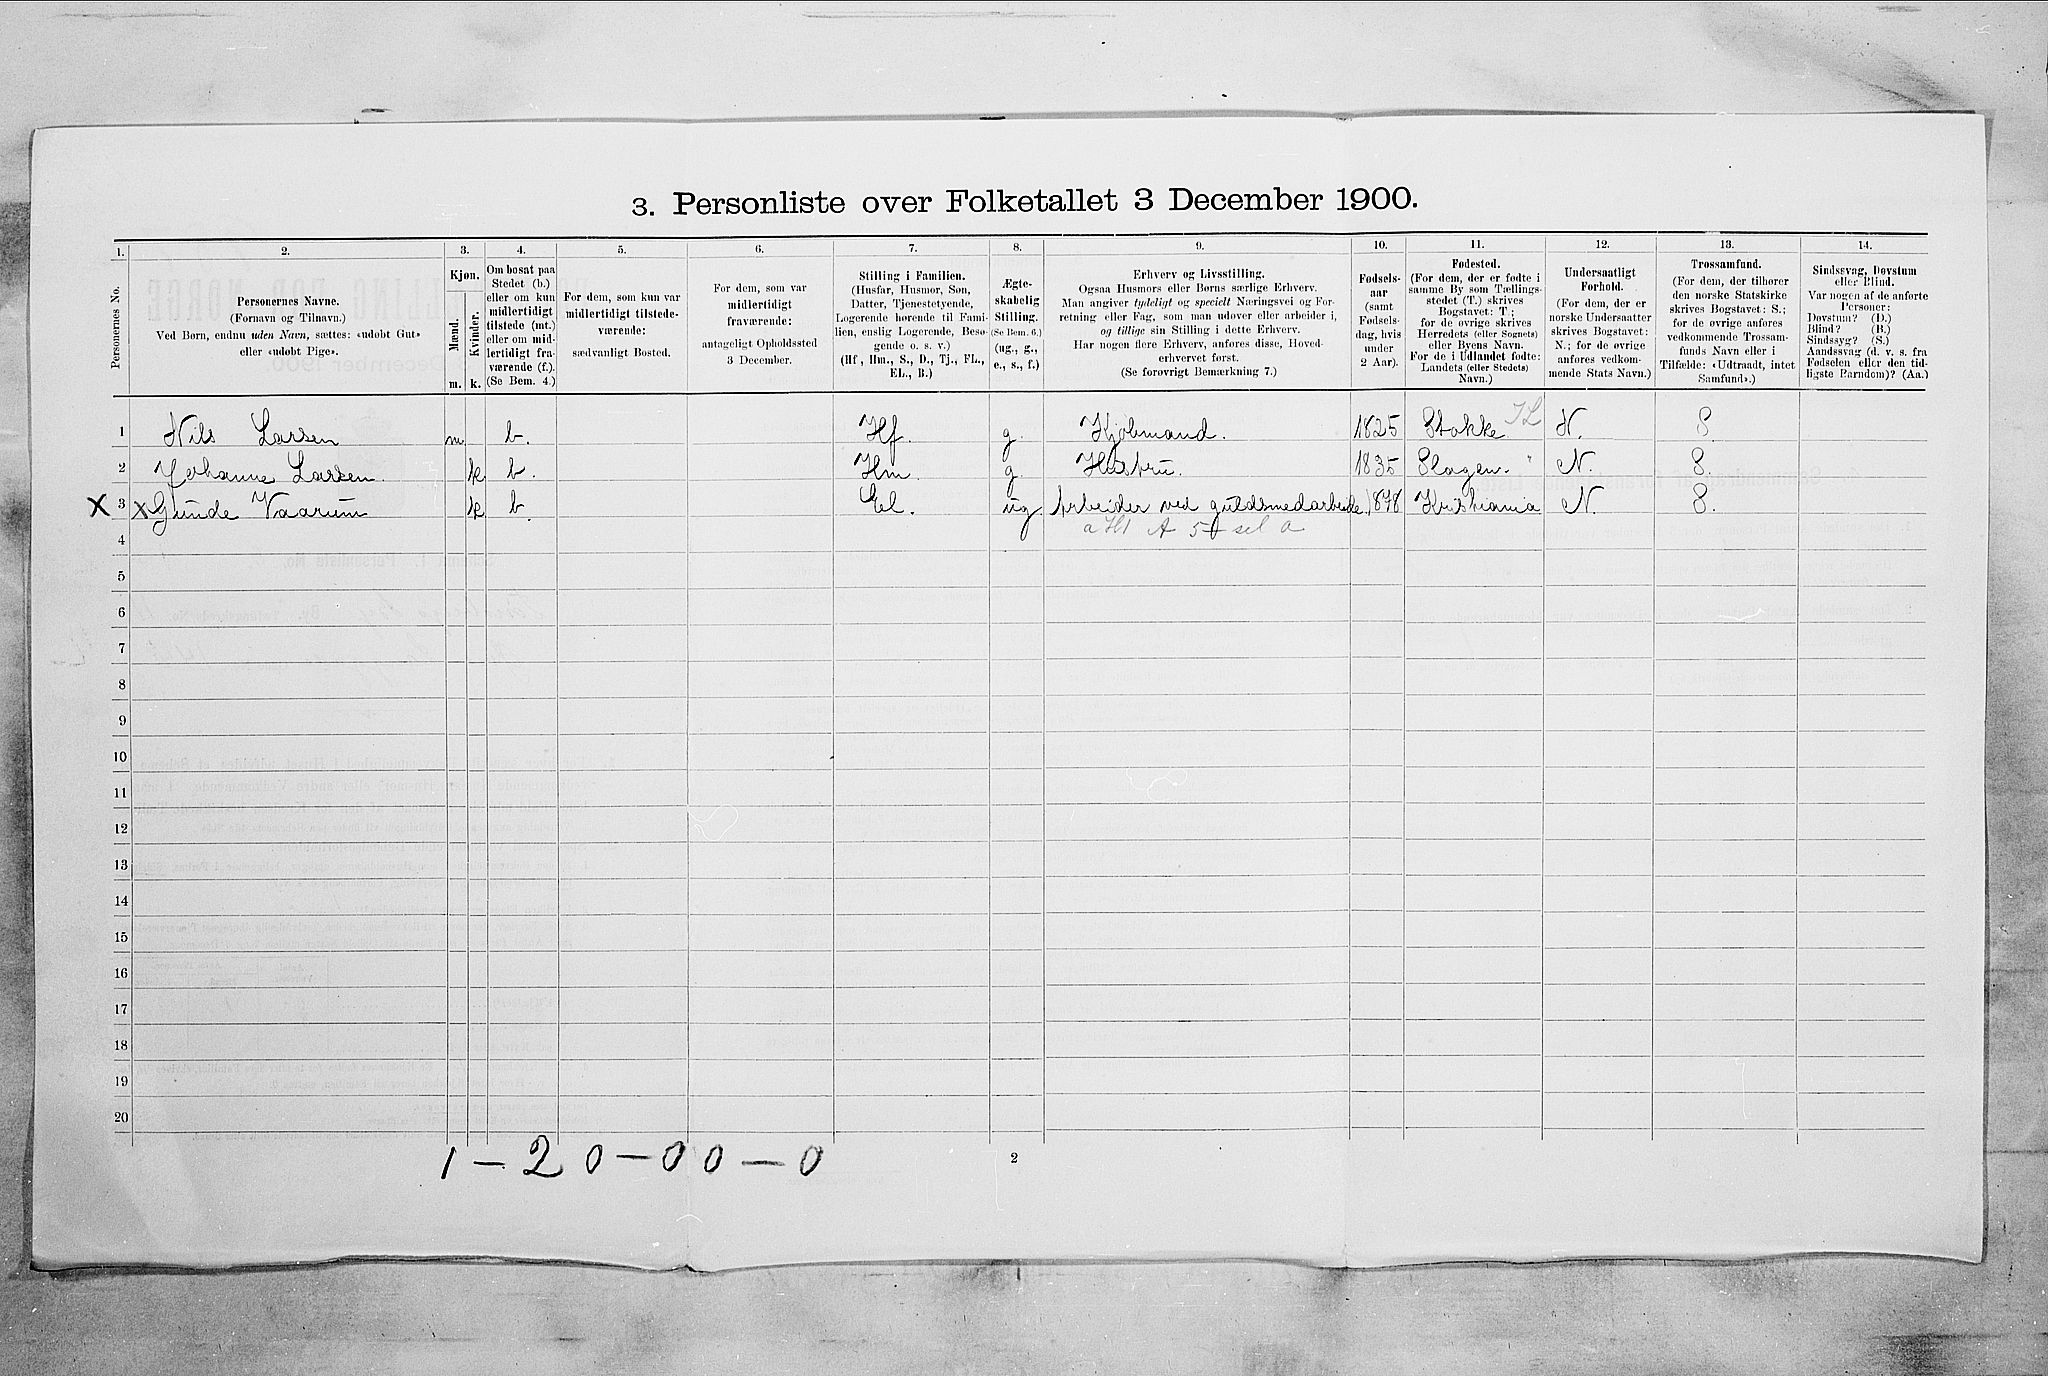 3. Personliste over Folketallet 3 December 1900.
1. 2. 3. 4. 5. 6. 7. 8. 9. 10. 11. 12. 13. 14.
Personernes No.
Personernes Navne.
(Fornavn og Tilnavn.)
Ved Børn, endnu uden Navn, sættes: «udøbt Gut»
eller «udøbt Pige».
Kjøn.
Mænd.
Kvinder.
m. k.
Om bosat paa
Stedet (b.)
eller om kun
midlertidigt
tilstede (mt.)
eller om mid-
lertidigt fra-
værende (f.).
(Se Bem. 4.)
For dem, som kun var
midlertidigt tilstede-
værende:
sædvanligt Bosted.
For dem, som var
midlertidigt
fraværende:
antageligt Opholdssted
3 December.
Stilling i Familien.
(Husfar, Husmor, Søn,
Datter, Tjenestetyende,
Logerende hørende til Fami-
lien, enslig Logerende, Besø-
gende o. s. v.)
(Hf., Hm., S., D., Tj., FL.,
EL., B.)
Ægte-
skabelig
Stilling.
(Se Bem. 6.)
(ug., g.,
e., s., f.)
Erhverv og Livsstilling.
Ogsaa Husmors eller Børns særlige Erhverv.
Man angiver tydeligt og specielt Næringsvei og For-
retning eller Fag, som man udover eller arbeider i,
og tillige sin Stilling i dette Erhverv.
Har nogen flere Erhverv, anføres disse, Hoved-
erhvervet først.
(Se forøvrigt Bemærkning 7.)
Fødsels-
aar
(samt
Fødsels-
dag, hvis
under
2 Aar).
Fødested.
(For dem, der er fødte i
samme By som Tællings-
stedet (T.) skrives
Bogstavet: T.;
for de øvrige skrives
Herredets (eller Sognets)
eller Byens Navn.
For de i Udlandet fødte:
Landets (eller Stedets)
Navn.)
Undersaatligt
Forhold.
(For dem, der er
norske Undersaatter
skrives Bogstavet:
N.; for de øvrige
anføres vedkom-
mende Stats Navn.)
Trossamfund.
(For dem, der tilhører
den norske Statskirke
skrives Bogstavet: S.;
for de øvrige anføres
vedkommende Trossam-
funds Navn eller i
Tilfælde: «Udtraadt, intet
Samfund».)
Sindssvag, Døvstum
eller Blind.
Var nogen af de anførte
Personer:
Døvstum? (D.)
Blind? (B.)
Sindssyg? (S.)
Aandssvag (d. v. s. fra
Fødselen eller den tid-
ligste Barndom)? (Aa.)
1 Nils Larsen m. b. Hf. g. Kjøbmand. 1825 Stokke JL N. S.
2 Johanne Larsen. k b. Hm g. Hustru. 1835 Slagen. " N. S.
X 3 x Gunde Vaarum k b. El. ug. Arbeider ved guldsmedarbeide. 1878 Kristiania N. S.
4
5
6
7
8
9
10
11
12
13
14
15
16
17
18
19
20
1 - 2 0 - 0 0 - 0
2